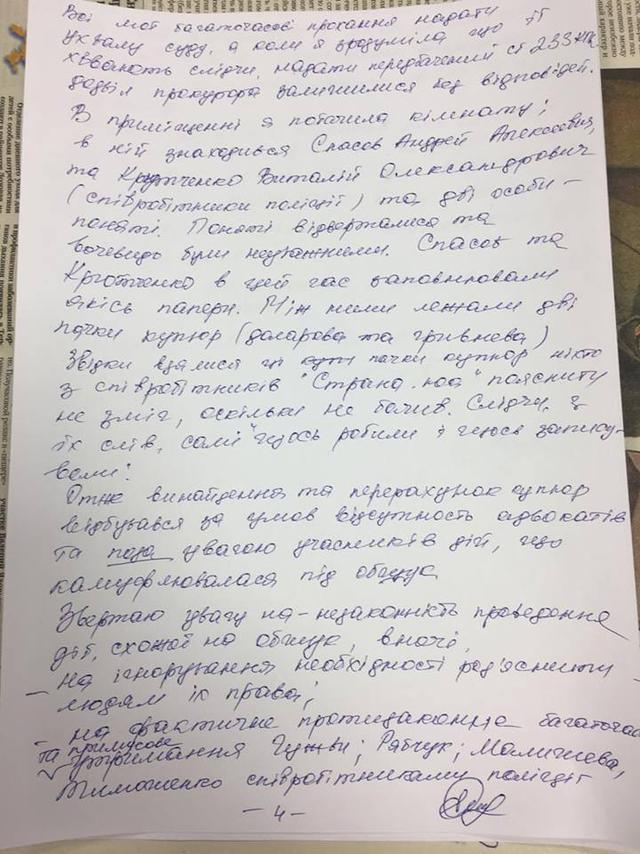 Всі мої багаточасові прохання надати
ухвалу суду, а коли я зрозуміла що її
ховають слідчі, надати передбачений ст 233 КПК
дозвіл прокурора залишилися без відповідей.
В приміщенні я побачила кімнату;
в ній знаходився Спасов Андрей Алексеевич,
та Крутченко Виталій Олександрович
(співробітники поліції) та дві особи –
поняті. Поняті відверталися та
вочевидь були неуважними. Спасов та
Крутченко в цей час заповнювали
якісь папери. Між ними лежали дві
пачки купюр (доларова та гривнева)
Звідки взялися ці пачки купюр ніхто
з співробітників "Страна.юа" пояснити
не зміг, оскільки не бачив. Слідчі, з
їх слів, самі "щось робили і щось запису-
вали".
Отже винайдення та перерахунок купюр
відбувався за умов відсутность адвокатів
та поза увагою учасників дій, що
камуфлювалася під обшук
Звертаю увагу на – незаконність проведення
дії, схожої на обшук, вночі,
– на ігнорування необхідності роз'яснити
людям їх права;
– на фактичне протизаконне багаточас
та примусове
утримання Гужви; Рябчук; Малишева,
Тимошенко співробітниками поліції
– 4 –